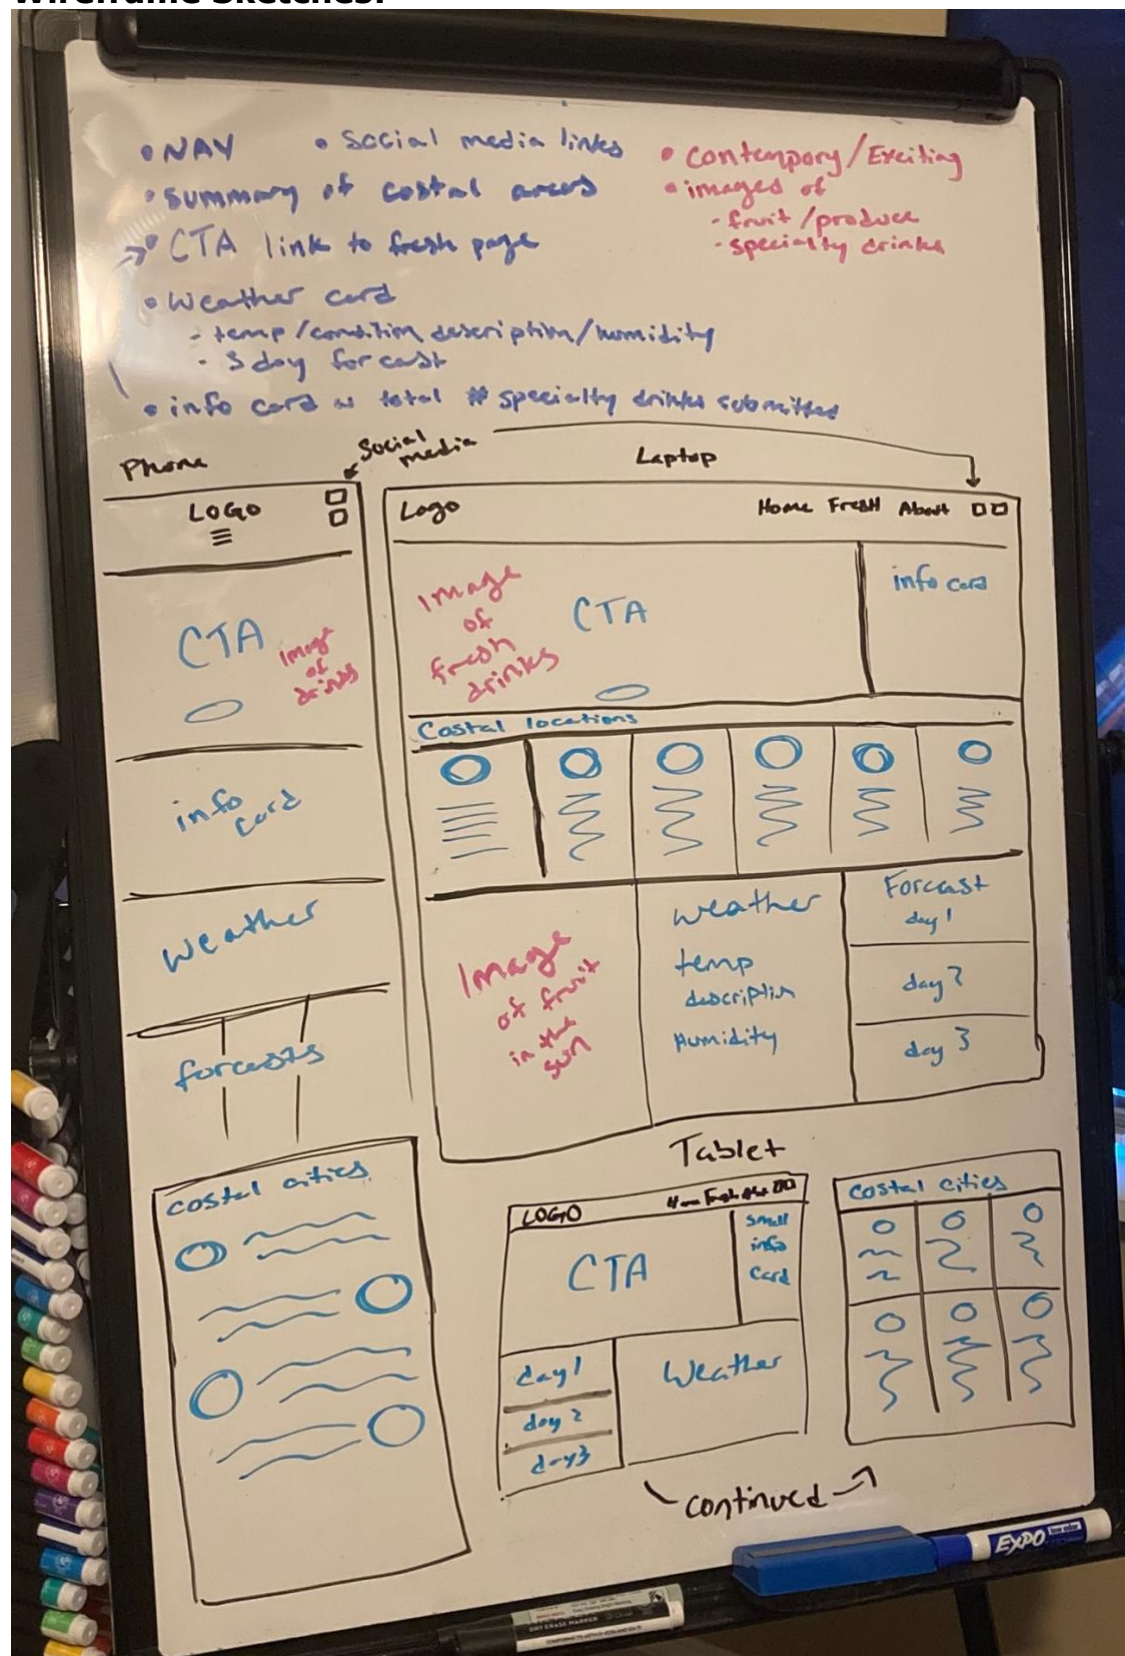 Wireframe Sketches:
• NAV • Social media links
• summary of costal areas
• CTA link to fresh page
• Weather card
- temp/condition description/humidity
- 3 day forcast
• info card w total # specialty drinks submitted
• contempory/Exciting
• images of
- fruit/produce
- specialty drinks
Phone
Social
media
LOGO
CTA
Image
of
drinks
info
card
weather
forcasts
costal cities
Laptop
Logo
Home Fresh About
Image
of
fresh
drinks
CTA
info card
Costal locations
Image
of fruit
in the
sun
weather
temp
description
Humidity
Forcast
day 1
day 2
day 3
Tablet
LOGO
Home Fresh Abt
CTA
small
info
card
day 1
day 2
day 3
Weather
costal cities
continued
EXPO
low odor
DRY ERASE MARKER